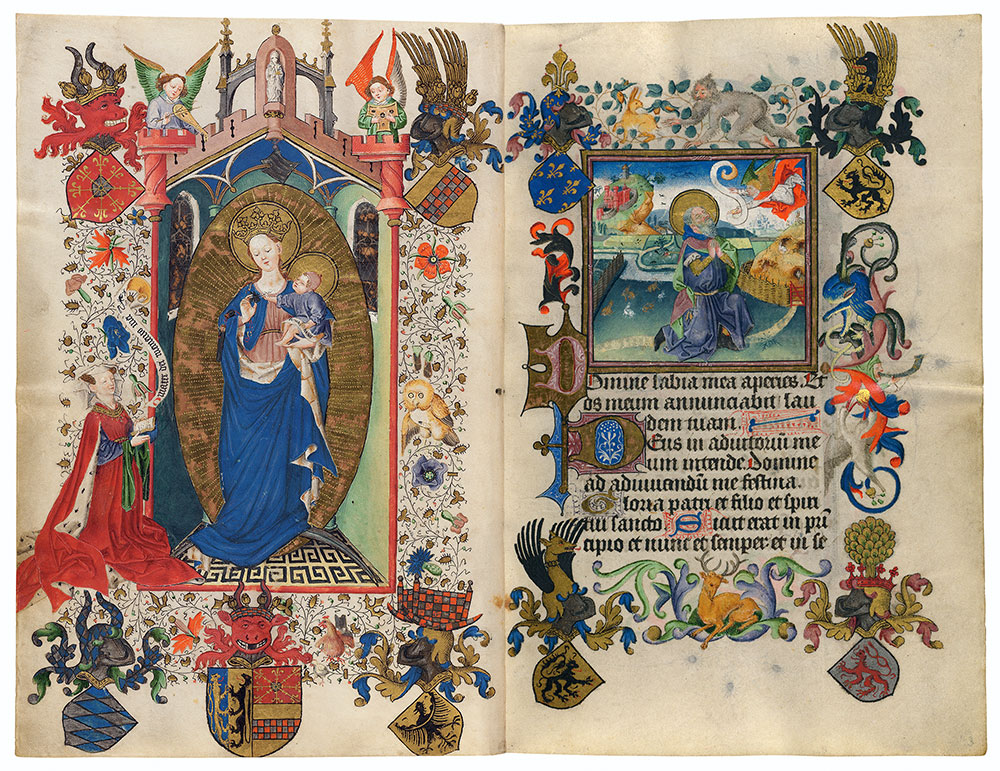 Domine labia mea aperies. Et
os meum annunciabit lau
dem tuam.
Deus in adiutoriū me
um intende. Domine
ad adiuuandū me festina.
Gloria patri et filio et spiri
tui sancto Sicut erat in prī
cipio et nunc et semper et in se